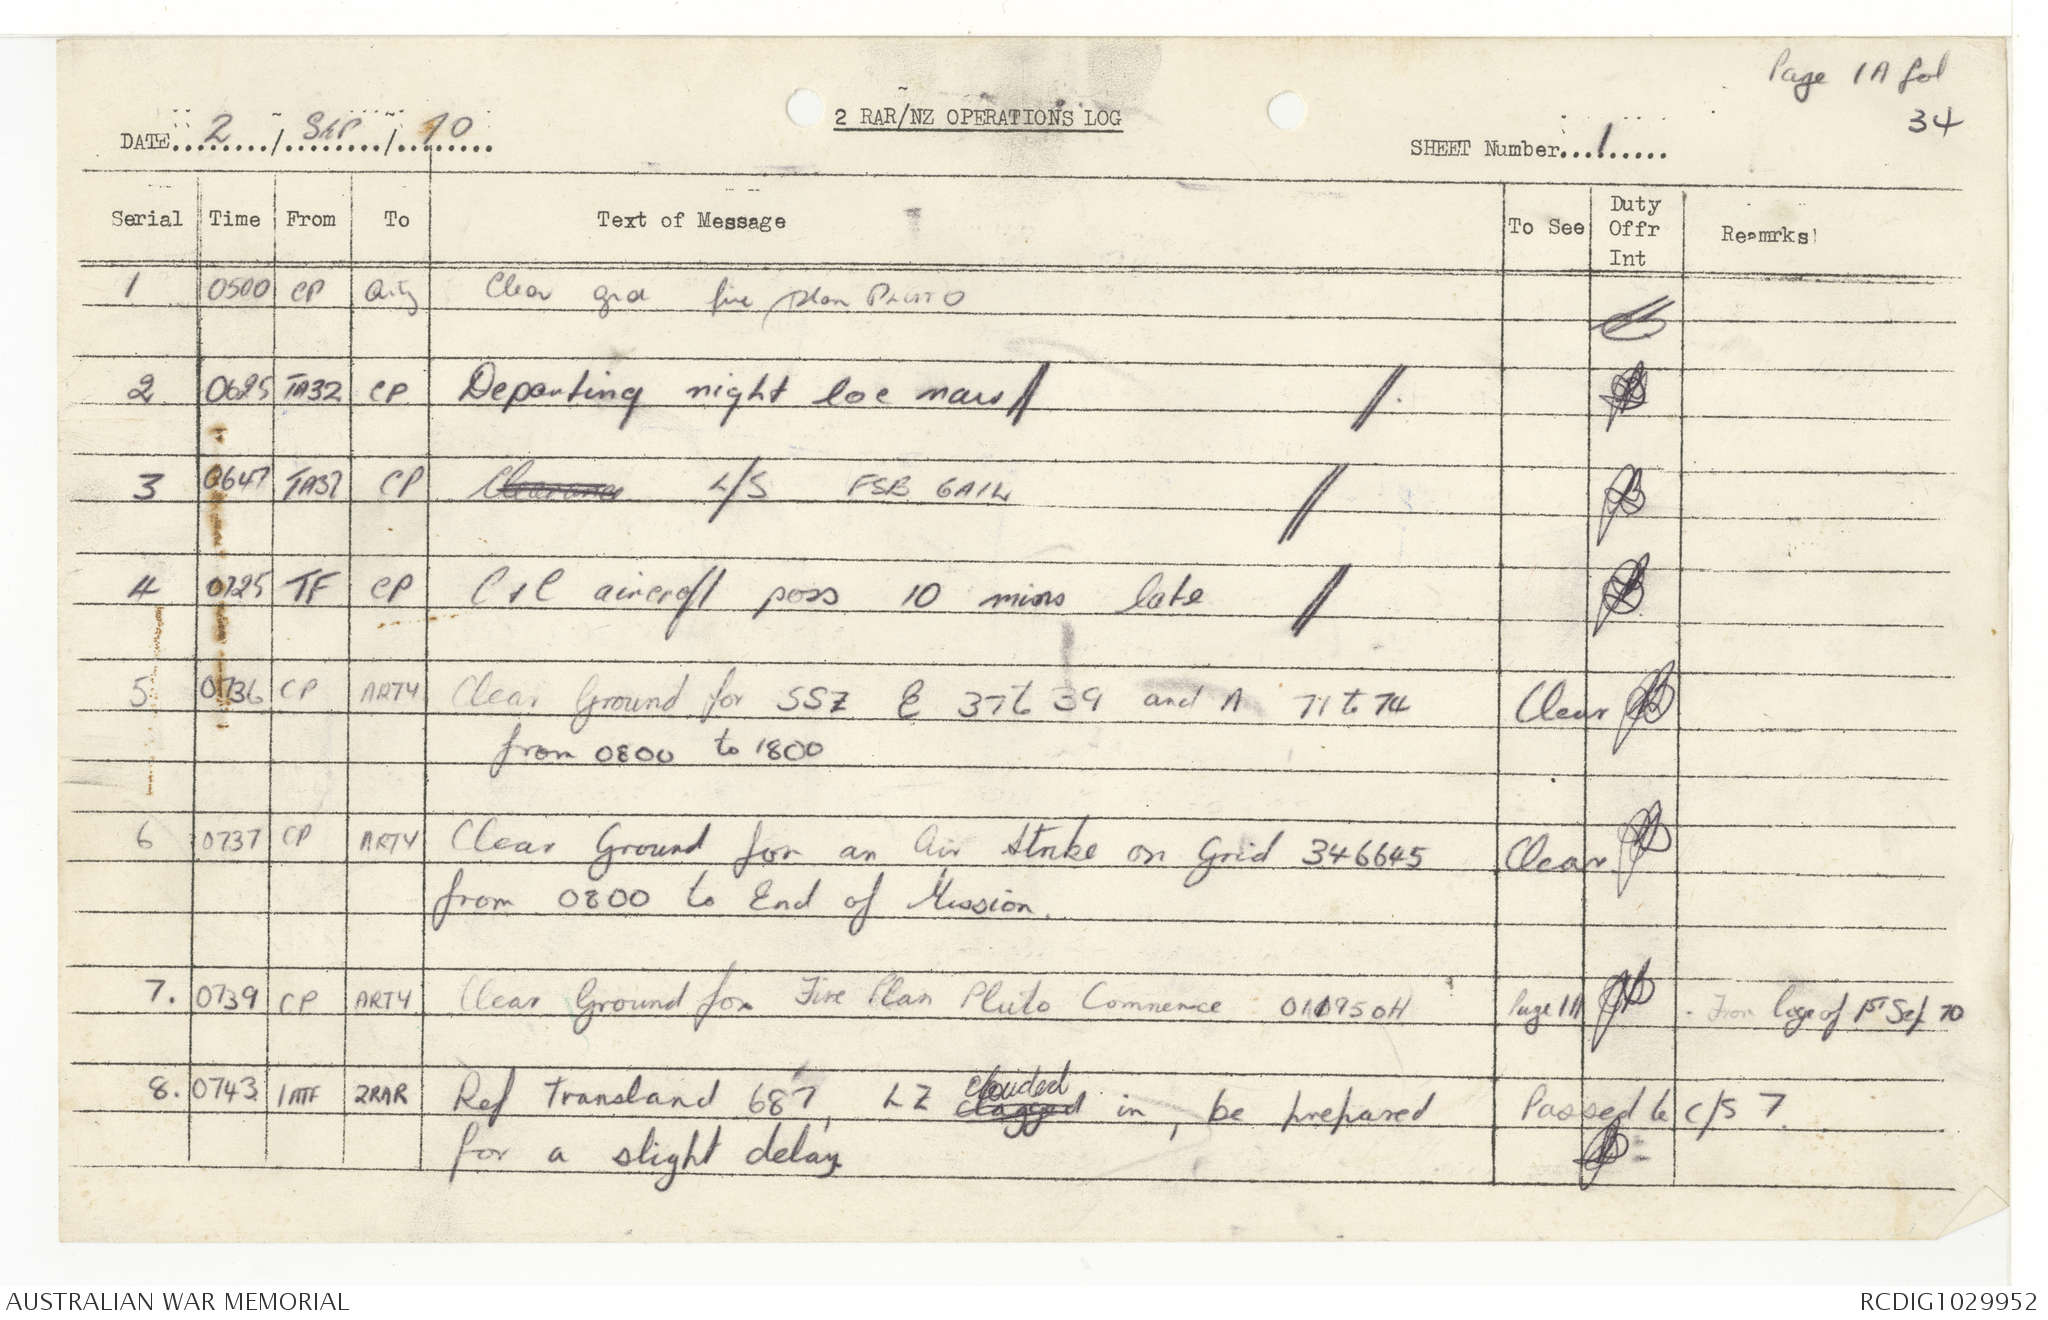 Page 1A fol
34
2 RAR/NZ OPERATIONS LOG
DATE 2 / Sep / 70
SHEET Number 1
Serial Time From To Text of Message To See Duty Offr Int Remarks
1 0500 CP Arty Clear grd fire plan PLUTO
2 0625 TA32 CP Departing night loc
3 0647 TA37 CP L/S FSB GAIL
4 0725 TF CP C+C aircraft poss 10 mins late
5 0736 CP ARTY Clear Ground for SSZ E 37 to 39 and A 71 to 74 Clear
from 0800 to 1800
6 0737 CP ARTY Clear Ground for an Air Strike on Grid 346645 Clear
from 0800 to End of Mission.
7. 0739 CP ARTY Clear Ground for Fire Plan Pluto Commence Page 1A - From logs of 1st Sep 70
8. 0743 1ATF 2RAR Ref transland 687, LZ clagged clouded in, be prepared Passed to C/S 7.
for a slight delay
AUSTRALIAN WAR MEMORIAL
RCDIG1029952